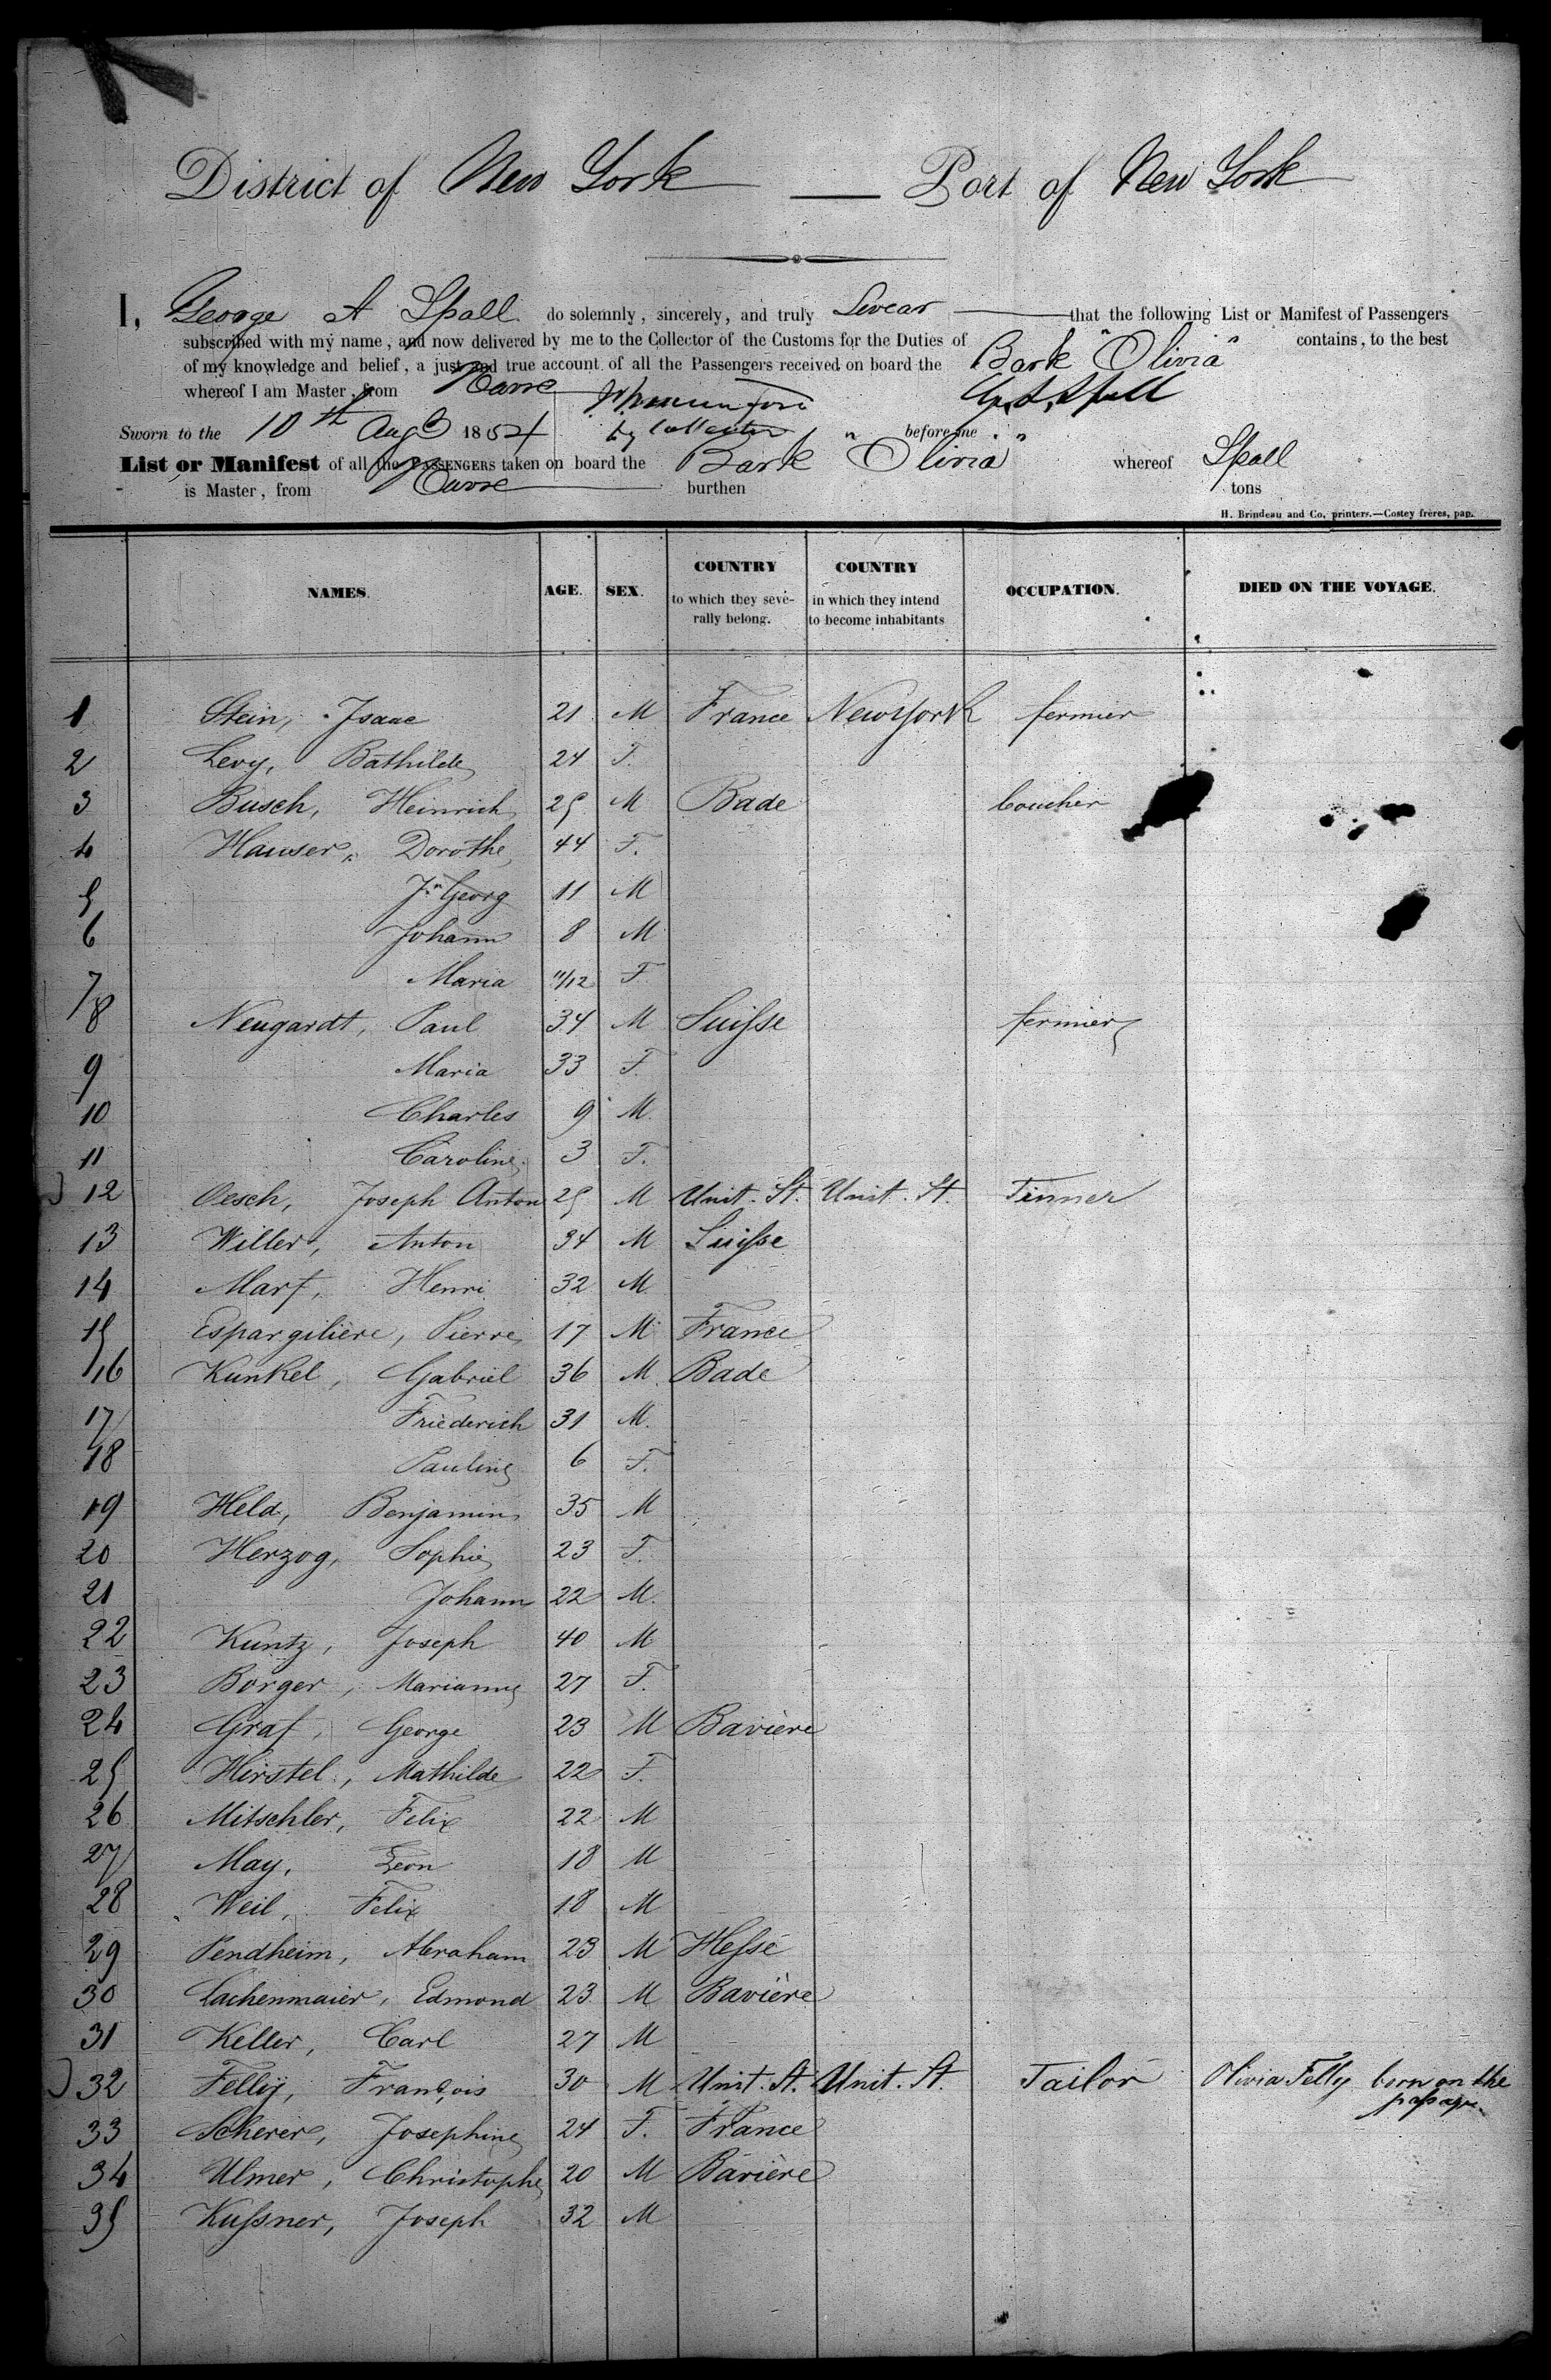 District of New York — Port of New York
I, George A Spall do solemnly, sincerely, and truly Swear that the following List or Manifest of Passengers
subscribed with my name, and now delivered by me to the Collector of the Customs for the Duties of contains, to the best
of my knowledge and belief, a just and true account of all the Passengers received on board the Bark "Olivia"
whereof I am Master, from Havre
Sworn to the 10th Aug 1854 before me
List or Manifest of all the PASSENGERS taken on board the Bark "Olivia" whereof Spall
is Master, from Havre burthen tons
H. Brindeau and Co, printers.—Costey frères, pap.
NAMES. AGE. SEX. COUNTRY to which they severally belong. COUNTRY in which they intend to become inhabitants OCCUPATION. DIED ON THE VOYAGE.
1 Stein, Isaac 21 M France New York fermier
2 Levy, Bathilde 24 F.
3 Busch, Heinrich 25 M Bade boucher
4 Hauser, Dorothe 44 F.
5 Jn Georg 11 M
6 Johann 8 M
7 Maria 11/12 F
8 Neugardt, Paul 34 M Suisse fermier
9 Maria 33 F.
10 Charles 9 M.
11 Caroline 3 F.
12 Oesch, Joseph Anton 25 M Unit. St. Unit. St. Tinner
13 Willer, Anton 34 M Suisse
14 Marf, Henri 32 M.
15 Espargilière, Pierre 17 M France
16 Kunkel, Gabriel 36 M. Bade
17 Friederich 31 M.
18 Pauline 6 F.
19 Held, Benjamin 35 M
20 Herzog, Sophie 23 F.
21 Johann 22 M.
22 Kuntz, Joseph 40 M
23 Borger, Marianne 27 F.
24 Graf, George 23 M Bavière
25 Hirstel, Mathilde 22 F.
26 Mitschler, Felix 22 M
27 May, Leon 18 M
28 Weil, Felix 18 M
29 Pendheim, Abraham 23 M Hesse
30 Lachenmaier, Edmond 23 M Bavière
31 Keller, Carl 27 M
32 Felly, François 30 M Unit. St. Unit. St. Tailor Olivia Felly born on the
passage
33 Scherer, Josephine 24 F. France
34 Ulmer, Christophe 20 M Bavière
35 Kussner, Joseph 32 M